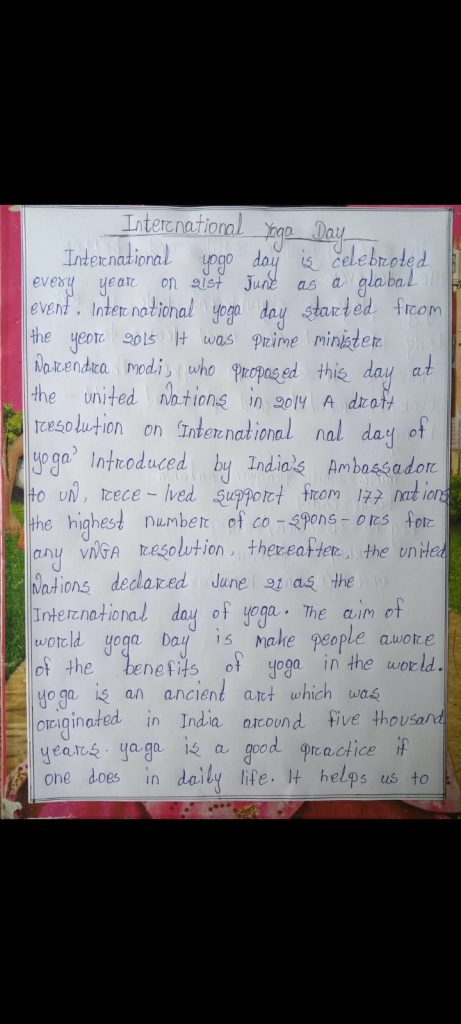 International Yoga Day
International yogo day is celebrated
every year on 21st June as a glabal
event. International yoga day started from
the year 2015 It was prime minister
Narendra modi, who proposed this day at
the united Nations in 2014 A draft
resolution on 'International nal day of
yoga' Introduced by India's Ambassador
to UN, rece-Ived support from 177 nations
the highest number of co-spons-ors for
any VNGA resolution, thereafter, the united
Nations declared June 21 as the
International day of yoga. The aim of
world yoga Day is make people aware
of the benefits of yoga in the world.
yoga is an ancient art which was
originated in India around five thousand
years. yaga is a good practice if
one does in daily life. It helps us to